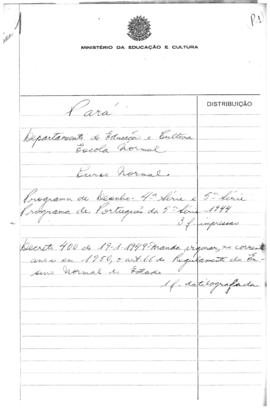 P.1
MINISTÉRIO DA EDUCAÇÃO E CULTURA
DISTRIBUIÇÃO
Pará
Departamento de Educação e Cultura
Escola Normal
Curso Normal.
Programa de Desenho - 4ª Série e 5ª Série
Programa de Português da 5ª Série 1944
3 f. impressas
Decreto 400 de 19-1-1949 manda vigorar, no corrente
ano em 1950, o art. 66 do Regulamento do En-
sino Normal do Estado
1 f. datilografada